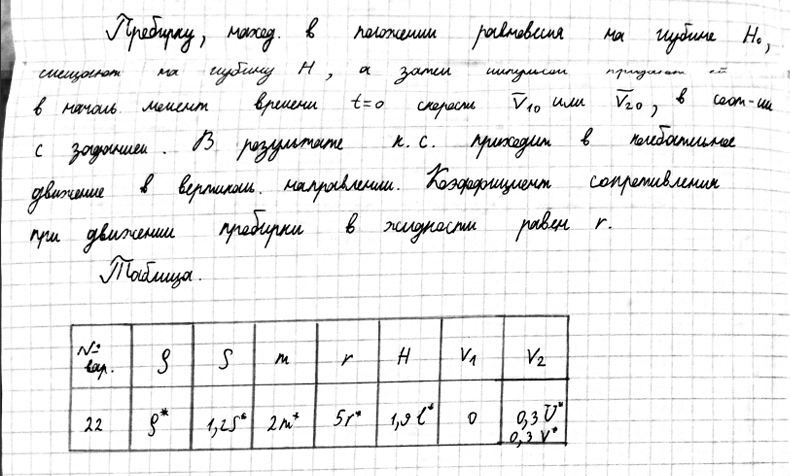 Пробирку, наход. в положении равновесия на глубине H₀,
смещают на глубину H, а затем импульсом придают ей
в началь. момент времени t=0 скорости V̅₁₀ или V̅₂₀, в соот-ии
с заданием. В результате к.с. приходит в колебательное
движение в вертикальн. направлении. Коэффициент сопротивления
при движении пробирки в жидкости равен r.
Таблица.
№ вар. ρ S m r H V₁ V₂
22 ρ* 1,2S* 2m* 5r* 1,9l* 0 0,3U*
0,3V*